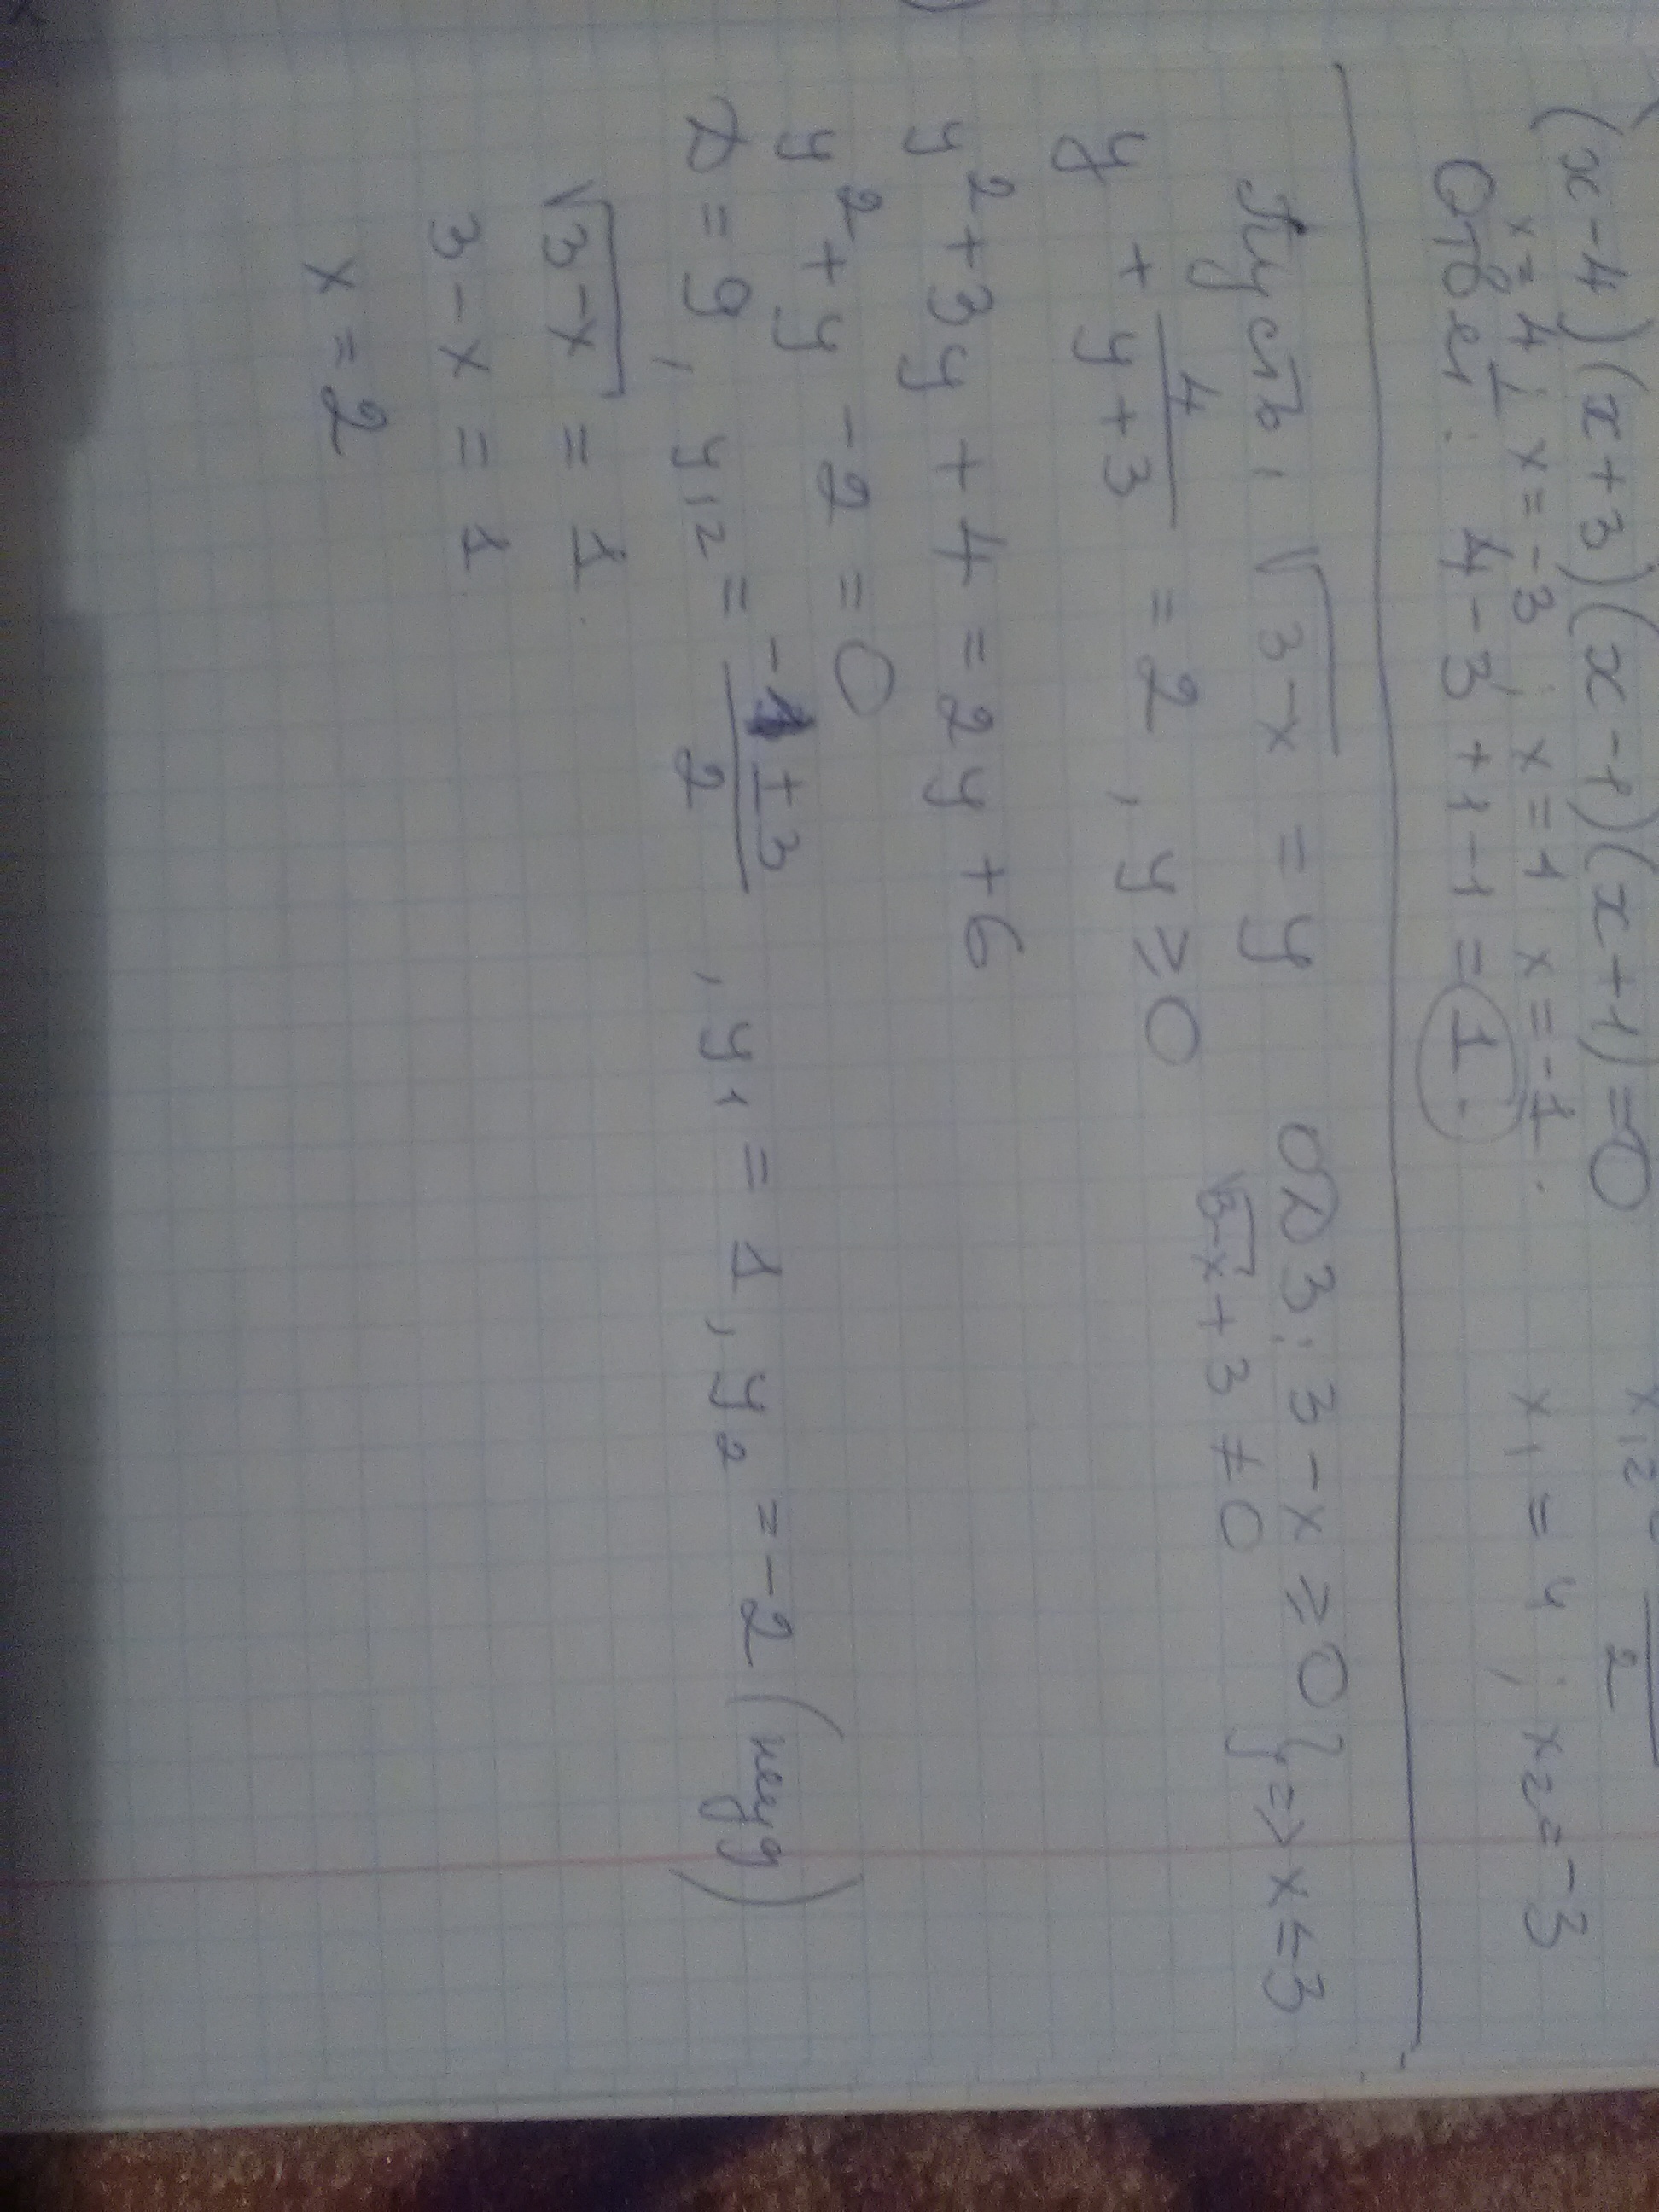 (x-4)(x+3)(x-1)(x+1)=0
x=4; x=-3; x=1 x=-1.
x₁=4; x₂=-3
Ответ: 4-3+1-1=1.
Пусть, √3-x = y
ОДЗ: 3-x≥0
√3-x+3≠0 } => x≤3
y + 4/(y+3) = 2, y≥0
y²+3y+4=2y+6
y²+y-2=0
D=9, y₁₂= (-1±3)/2, y₁=1, y₂=-2 (неуд)
√3-x = 1.
3-x=1
x=2